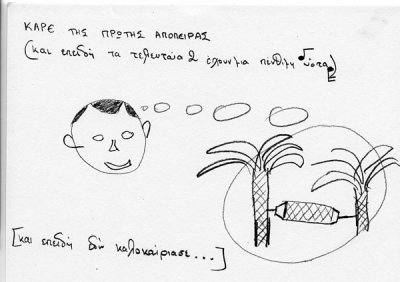 ΚΑΡΕ ΤΗΣ ΠΡΩΤΗΣ ΑΠΟΠΕΙΡΑΣ
(και επειδή τα τελευταία 2 έχουν μια πένθιμη νότα)
[και επειδή δεν καλοκαίριασε...]